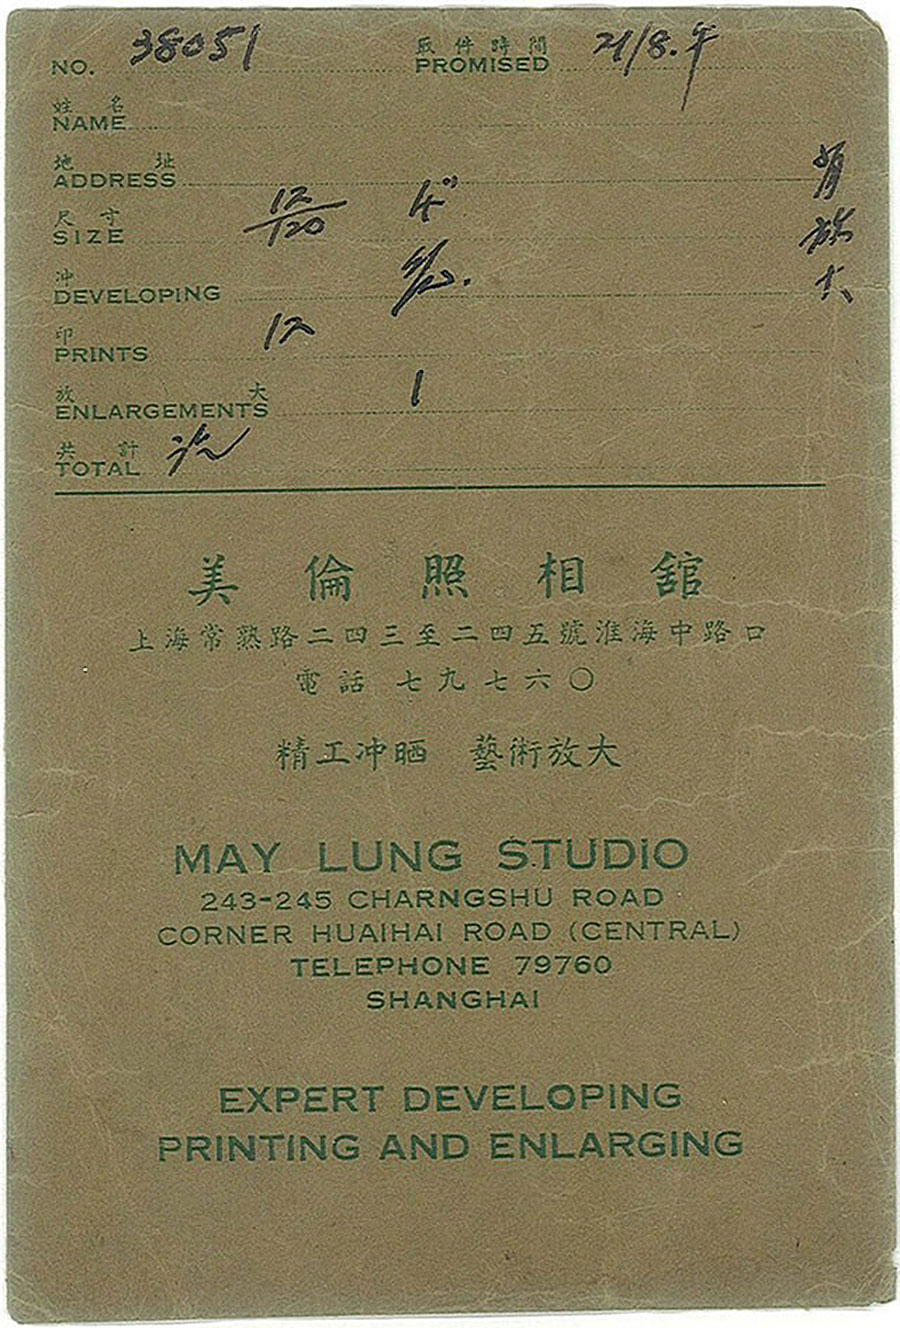 NO. 38051 取件時間 PROMISED 21/8.
姓名
NAME
地址
ADDRESS
尺寸
SIZE 12/120 4"
冲
DEVELOPING
印
PRINTS 12
放大
ENLARGEMENTS 1
共計
TOTAL
放
大
美倫照相舘
上海常熟路二四三至二四五號淮海中路口
電話 七九七六〇
精工冲晒 藝術放大
MAY LUNG STUDIO
243-245 CHARNGSHU ROAD
CORNER HUAIHAI ROAD (CENTRAL)
TELEPHONE 79760
SHANGHAI
EXPERT DEVELOPING
PRINTING AND ENLARGING